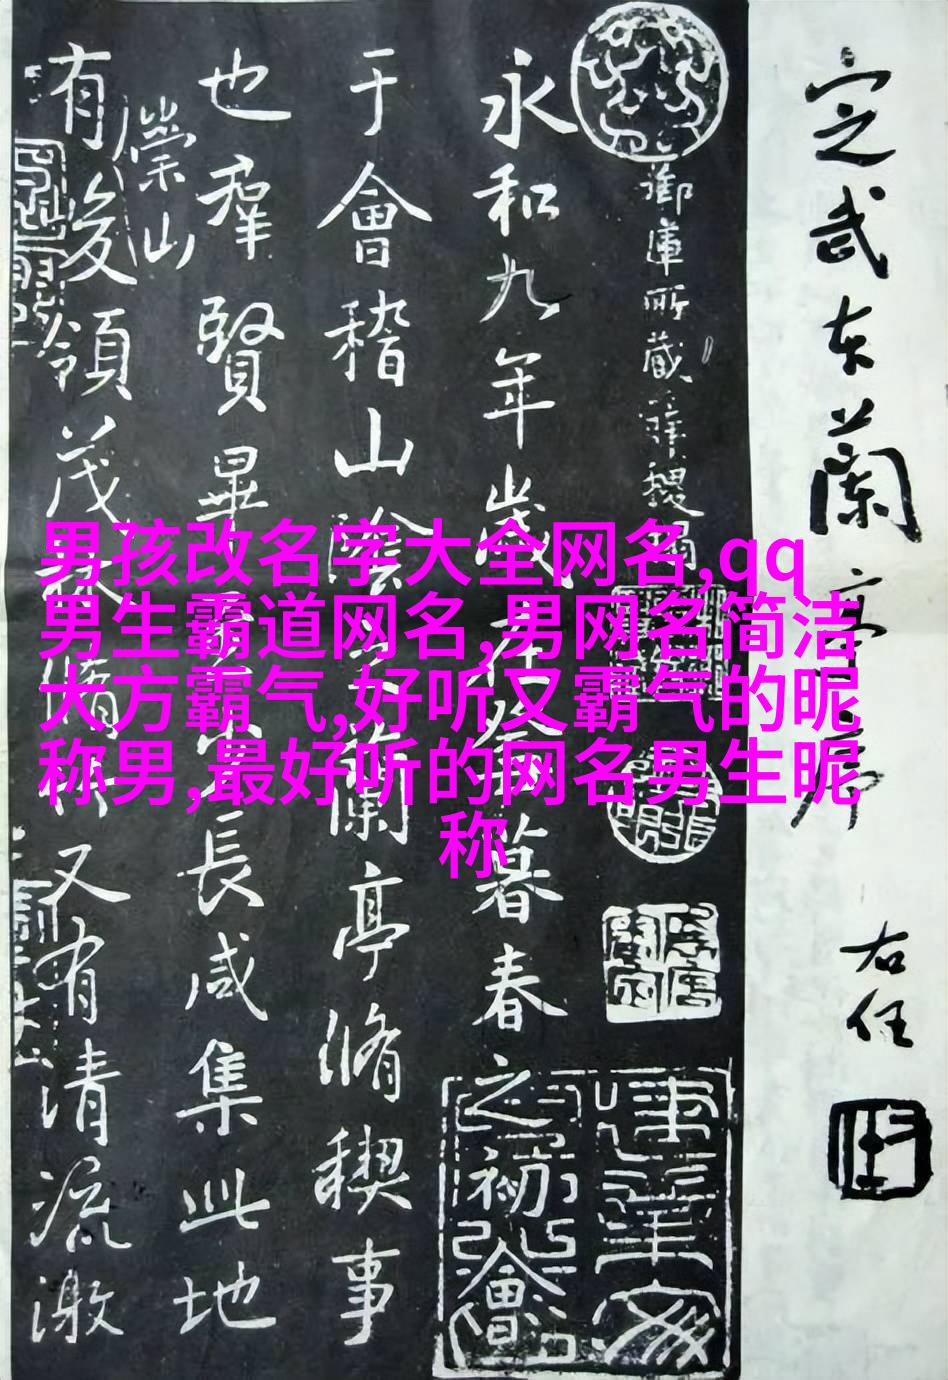 定武本蘭亭序
右任
御庫所藏
永和九年歲在癸丑暮春之初會
于會稽山陰之蘭亭脩稧事
也羣賢畢至少長咸集此地
崇山
有峻領茂林脩竹又有清流激
男孩改名字大全网名,qq
男生霸道网名,男网名简洁
大方霸气,好听又霸气的昵
称男,最好听的网名男生昵
称